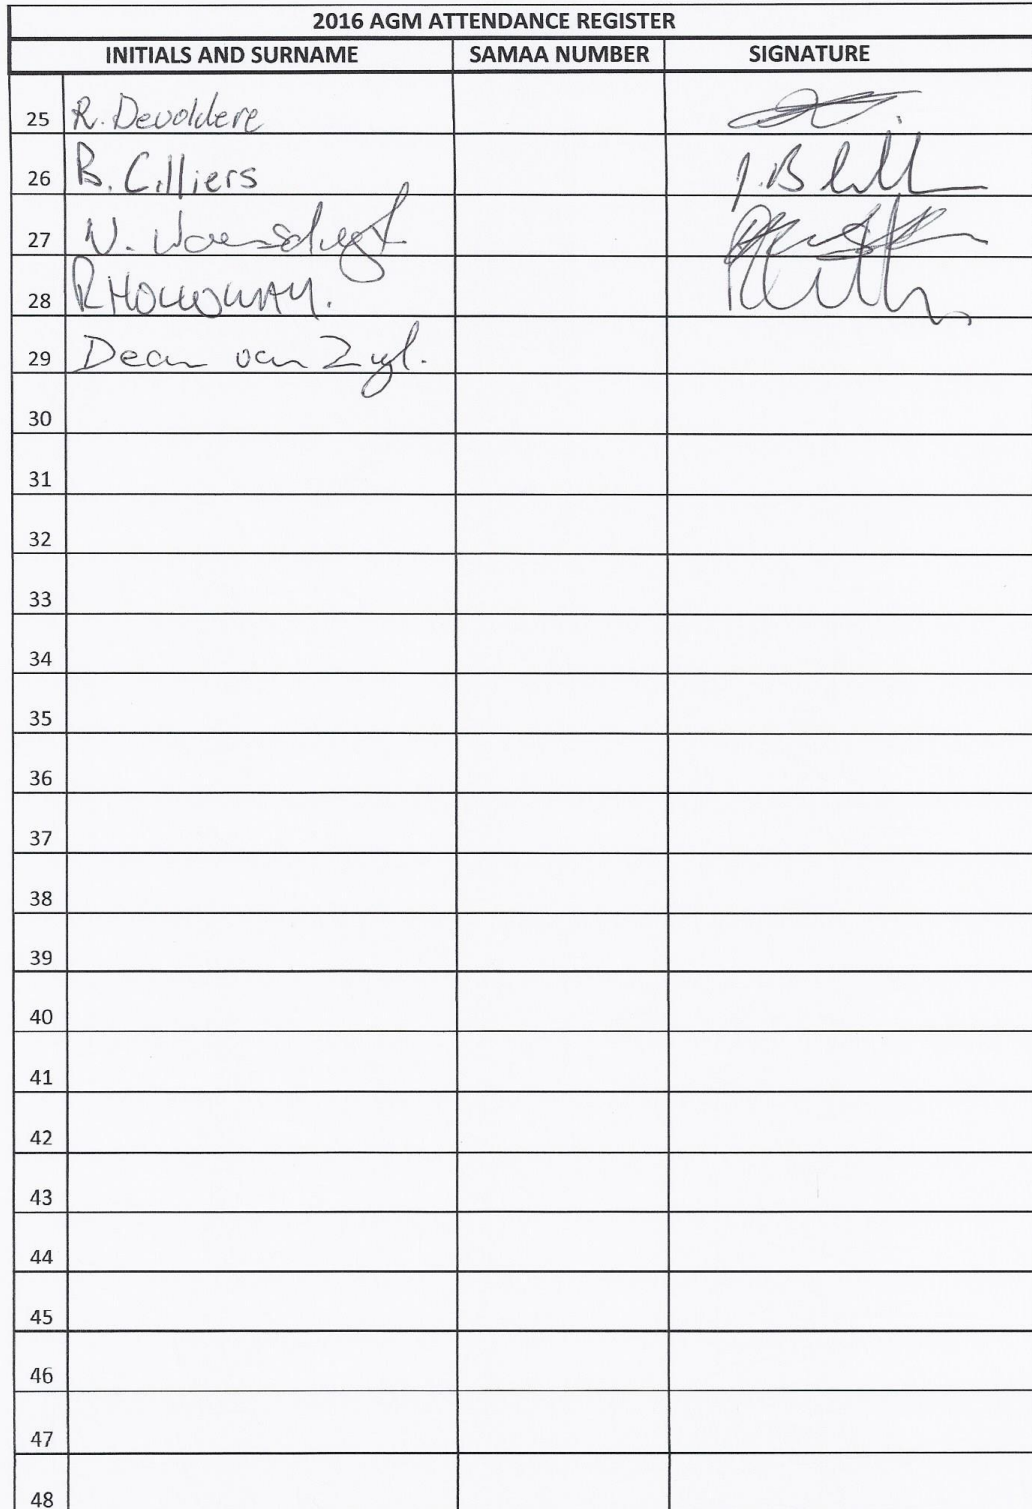 2016 AGM ATTENDANCE REGISTER
INITIALS AND SURNAME SAMAA NUMBER SIGNATURE
25 R. Devoldere
26 B. Cilliers
27 N.
28 R HOLLOWAY.
29 Dean van Zyl.
30
31
32
33
34
35
36
37
38
39
40
41
42
43
44
45
46
47
48